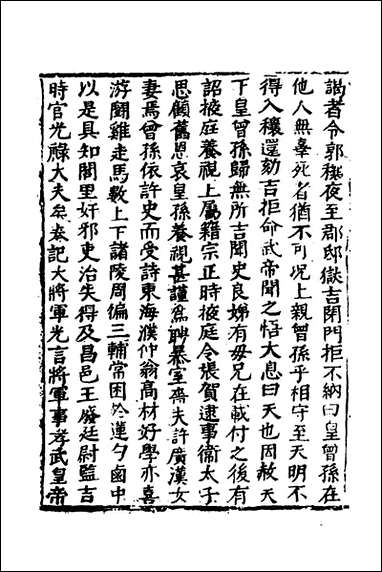 謁者令郭穰夜至郡邸獄吉閉門拒不納曰皇曾孫在
他人無辜死者猶不可況上親曾孫乎相守至天明不
得入穰還劾吉拒命武帝聞之悟大息曰天也因赦天
下皇曾孫歸無所吉聞史良娣有母兄在載付之後有
詔掖庭養視上屬籍宗正時掖庭令張賀逮事衛太子
思顧舊恩哀皇孫養視甚謹爲聘暴室嗇夫許廣漢女
妻焉曾孫依許史而受詩東海濮仲翁高材好學亦喜
游鬭雞走馬數上下諸陵周徧三輔常困於蓮勺鹵中
以是具知閭里奸邪吏治失得及昌邑王廢廷尉監吉
時官光祿大夫矣奏記大將軍光言將軍事孝武皇帝